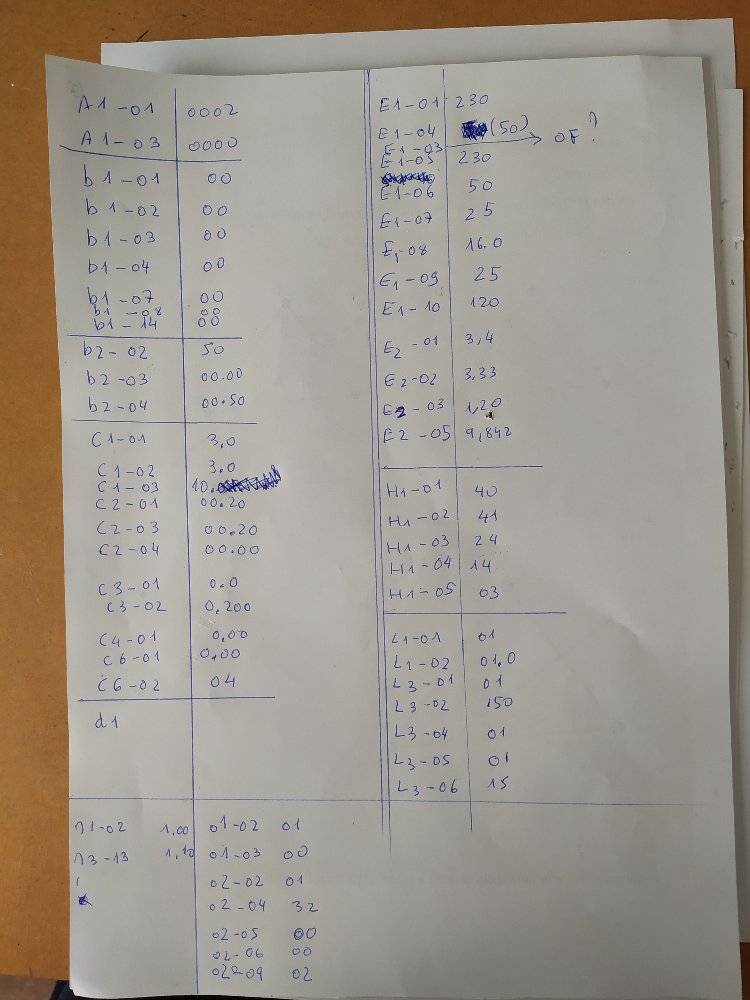 A1-01 0002
A1-03 0000
b1-01 00
b1-02 00
b1-03 00
b1-04 00
b1-07 00
b1-08 00
b1-14 00
b2-02 50
b2-03 00.00
b2-04 00.50
C1-01 3,0
C1-02 3.0
C1-03 10.
C2-01 00.20
C2-03 00.20
C2-04 00.00
C3-01 0.0
C3-02 0,200
C4-01 0,00
C6-01 0,00
C6-02 04
d1
E1-01 230
E1-04 (50)
E1-03 → OF ?
E1-05 230
E1-06 50
E1-07 25
E1-08 16.0
E1-09 25
E1-10 120
E2-01 3,4
E2-02 3,33
E2-03 1,20
E2-05 9,842
H1-01 40
H1-02 41
H1-03 24
H1-04 14
H1-05 03
L1-01 01
L1-02 01,0
L3-01 01
L3-02 150
L3-04 01
L3-05 01
L3-06 15
n1-02 1,00
n3-13 1,10
01-02 01
01-03 00
02-02 01
02-04 32
02-05 00
02-06 00
02-09 02